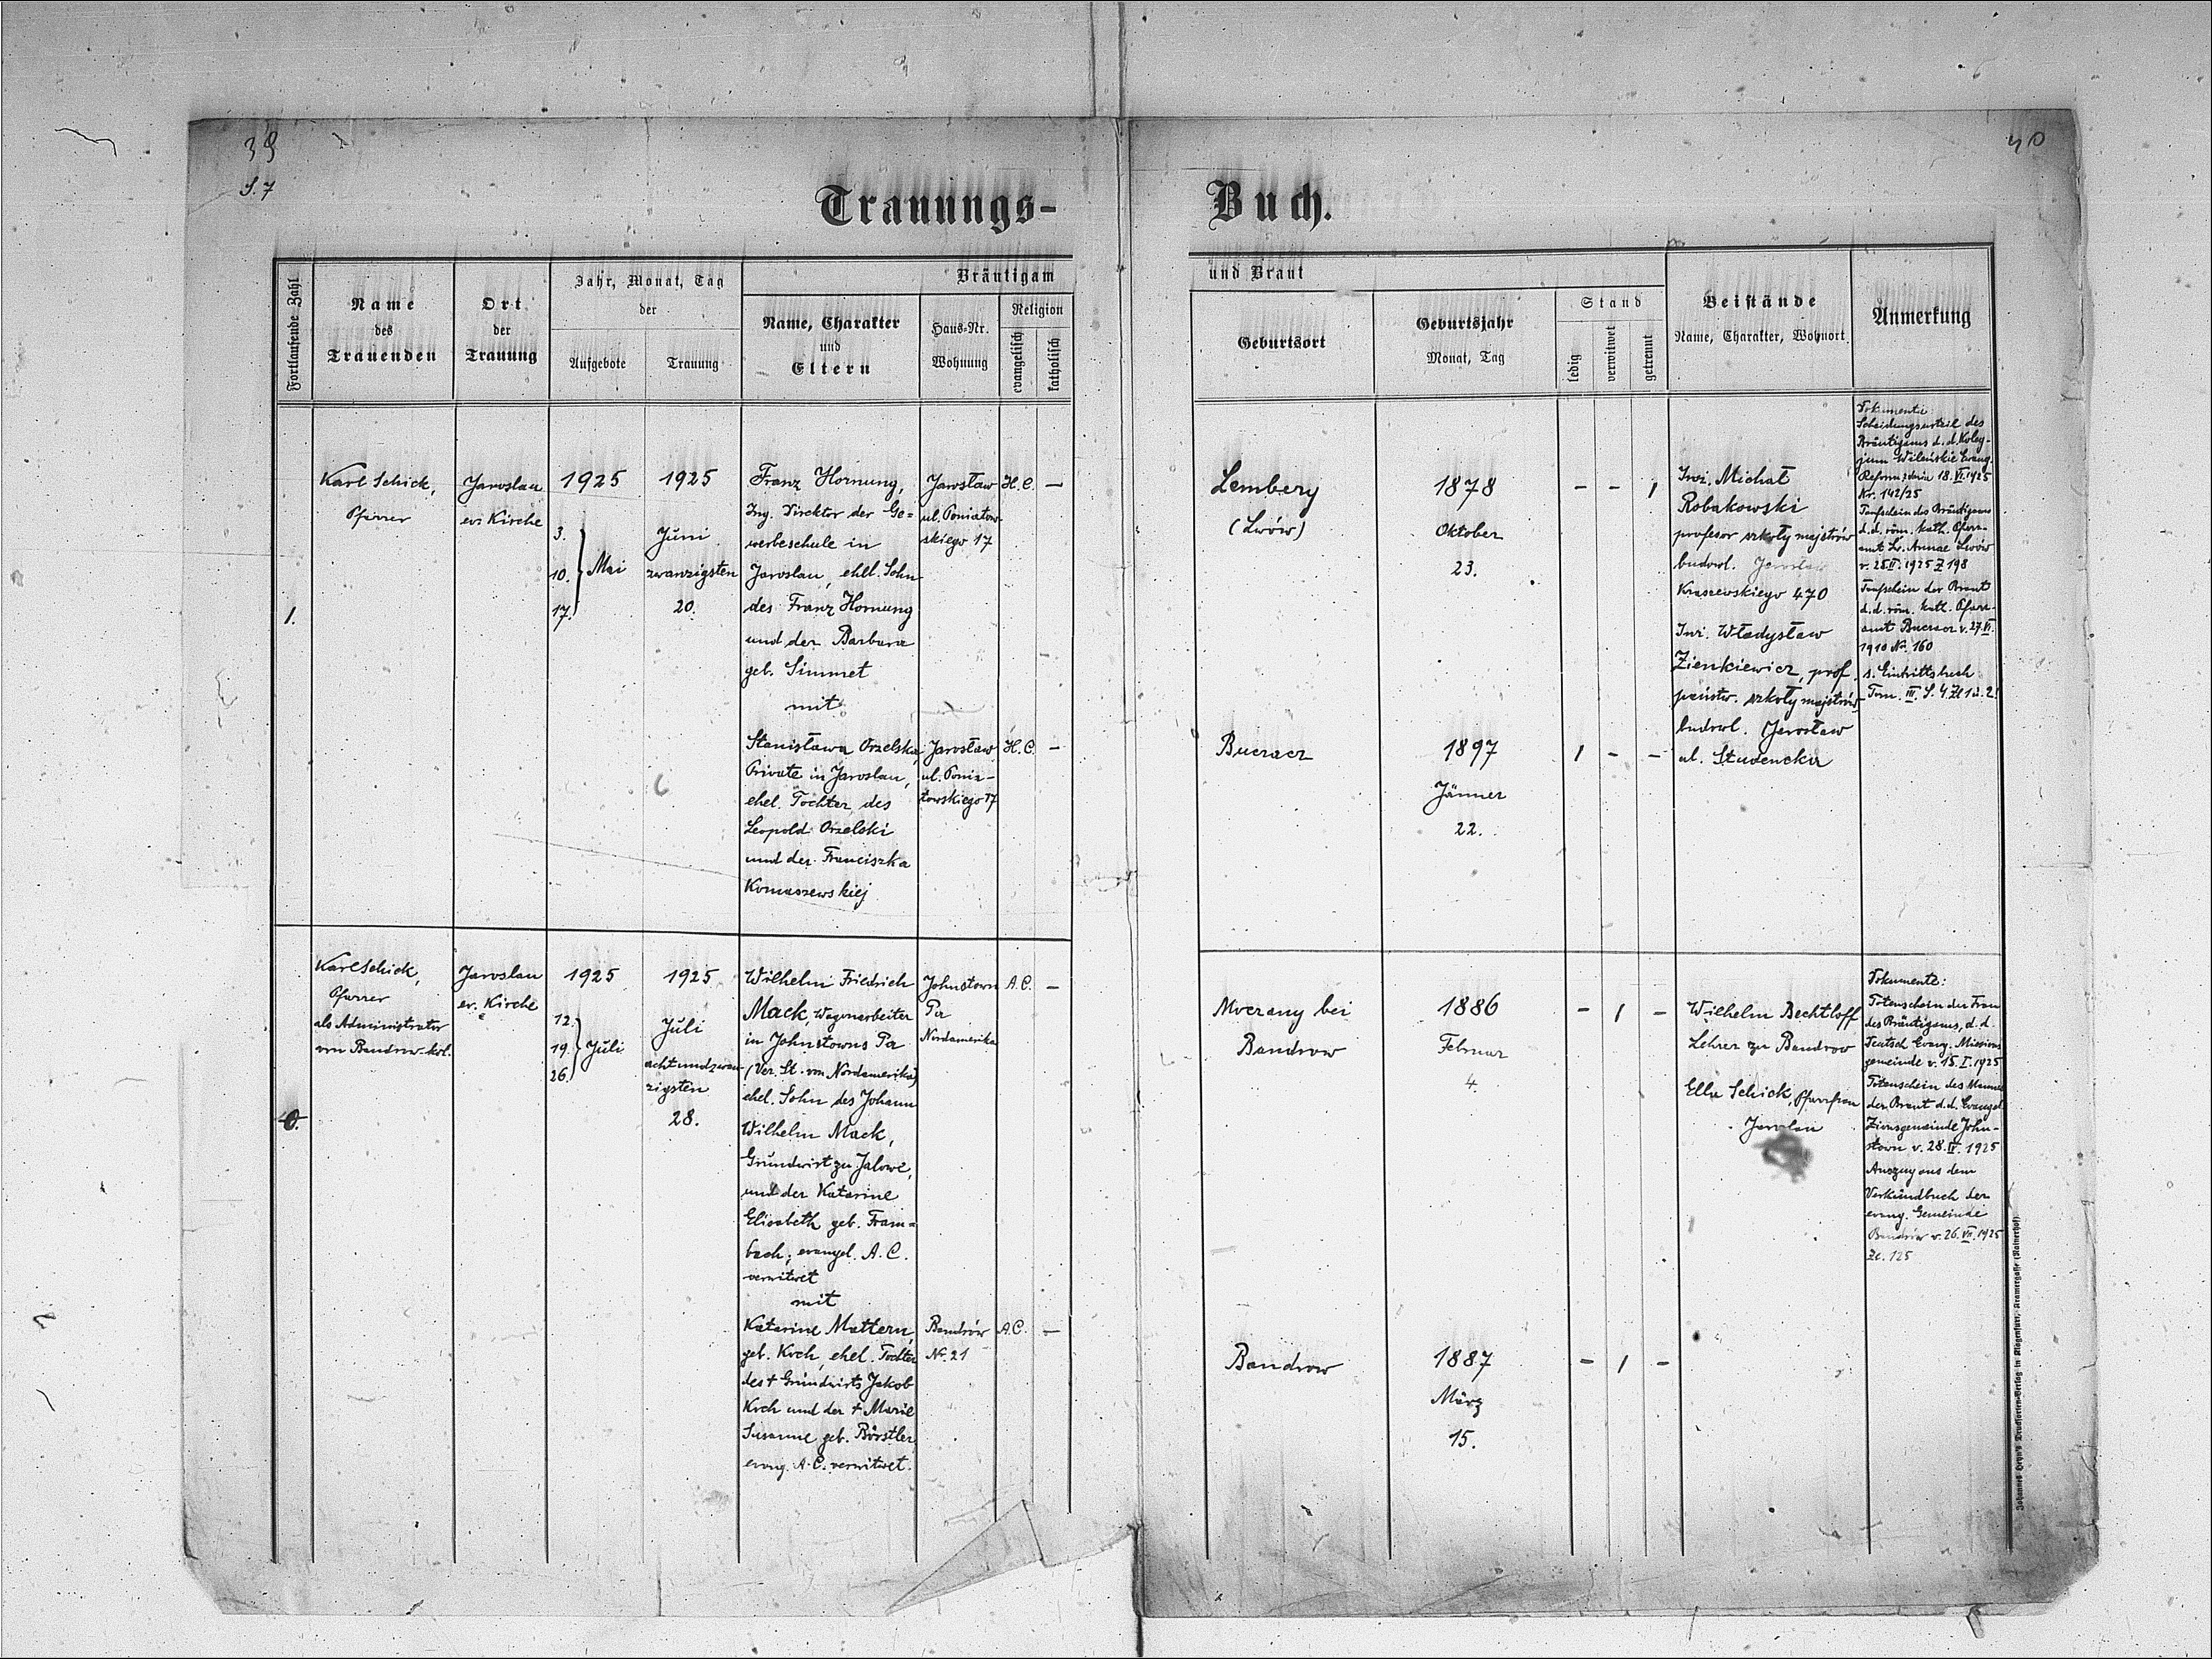 39
S. 7
40
Trauungs-
Buch.
Fortlaufende Zahl
Name
des
Trauenden
Ort
der
Trauung
Jahr, Monat, Tag
der
Aufgebote
Trauung
Bräutigam
Name, Charakter
und
Eltern
Haus-Nr.
Wohnung
Religion
evangelisch
katholisch
und Braut
Geburtsort
Geburtsjahr
Monat, Tag
Stand
ledig
verwitwet
getrennt
Beistände
Name, Charakter, Wohnort
Anmerkung
1.
Karl Schick,
Pfarrer
Jaroslau
ev. Kirche
1925
3.
10. Mai
17.
1925
Juni
zwanzigsten
20.
Franz Hornung,
Ing. Direktor der Ge=
werbeschule in
Jaroslau, ehel. Sohn
des Franz Hornung
und der Barbara
geb. Simmet
mit
Stanisława Orzelska,
Private in Jaroslau,
ehel. Tochter des
Leopold Orzelski
und der Franciszka
Komaszewskiej
Jarosław
ul. Poniatow-
skiego 17
H.C. –
Jarosław
ul. Ponia-
towskiego 17
H.C. –
Lemberg
(Lwów)
1878
Oktober
23.
- - 1
Buczacz
1897
Jänner
22.
1 - -
Inż. Michał
Robakowski
profesor szkoły majstrów
budowl. Jarosław
Kraszewskiego 470
Inż. Władysław
Zienkiewicz, prof.
państw. szkoły majstrów
budowl. Jarosław
ul. Studencka
Dokumente
Scheidungsurteil des
Bräutigams d. d. Koleg-
jum Wileńskie Ewang.
Reform. z dnia 18. VI. 1925
Nr. 142/25
Taufschein des Bräutigams
d. d. röm. kath. Pfarr-
amt St. Annae Lwów
v. 1925 Z 198
Taufschein der Braut
d. d. röm. kath. Pfarr-
amt Buczacz v. 27. VI.
1910 No. 160
s. Eintrittsbuch
Tom. III. S. 4 Zl 1 u. 2.
Karl Schick,
Pfarrer
als Administrator
von Bandrow-kol.
Jaroslau
ev. Kirche
1925
12.
19. Juli
26.
1925
Juli
achtundzwan-
zigsten
28.
Wilhelm Friedrich
Mack, Wagenarbeiter
in Johnstowns Pa
(Ver. St. von Nordamerika)
ehel. Sohn des Johann
Wilhelm Mack,
Grundwirt zu Jalowe,
und der Katarine
Elisabeth geb. Fram=
bach, evangel. A. C.
verwitwet
mit
Katarine Mattern,
geb. Koch, ehel. Tochter
des † Grundwirts Jakob
Koch und der † Marie
Susanne geb. Börstler
evang. A. C. verwitwet.
Johnstown
Pa
Nordamerika
A.C. –
Bandrów
Nr. 21
A.C. –
Moczary bei
Bandrow
1886
Februar
4.
- 1 -
Bandrow
1887
März
15.
- 1 -
Wilhelm Bechtloff
Lehrer zu Bandrow
Ella Schick, Pfarrfrau
Jaroslau
Dokumente:
Totenschein der Frau
des Bräutigams, d. d.
Deutsch Evang. Missions
gemeinde v. 15. I. 1925
Totenschein des Mannes
der Braut d. d. Evangel.
Zionsgemeinde John-
stown v. 28. IV. 1925
Auszug aus dem
Verkündbuch der
evang. Gemeinde
Bandrów v. 26. VII. 1925
Zl. 125
Johannes Heyn's Drucksorten-Verlag in Klagenfurt, Kramergasse (Rainerhof)